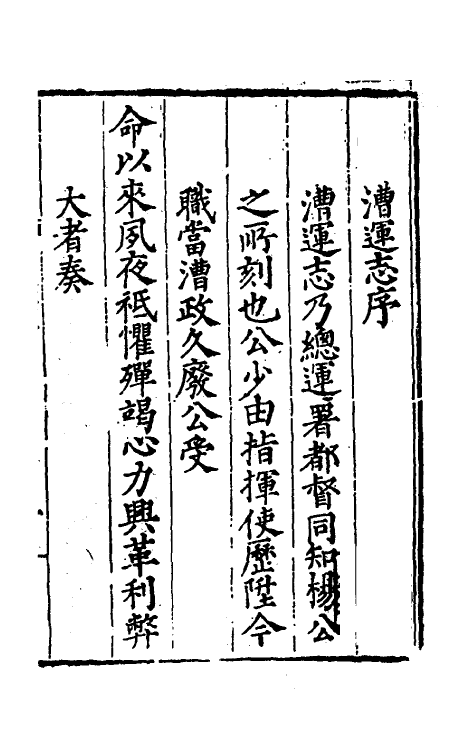 漕運志序
漕運志乃總運署都督同知楊公
之所刻也公少由指揮使歷陞今
職當漕政久廢公受
命以來夙夜袛懼殫竭心力興革利弊
大者奏